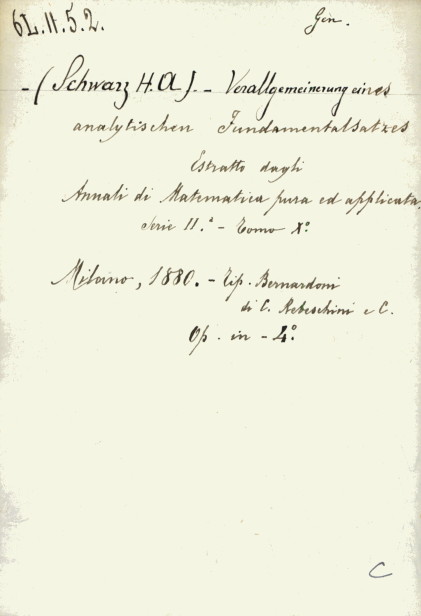 6L.11.5.2.
Gen.
- (Schwarz H. A). - Verallgemeinerung eines
analytischen Fundamentalsatzes
Estratto dagli
Annali di Matematica pura ed applicata.
Serie II.ª - Tomo X.º
Milano, 1880. - Tip. Bernardoni
di C. Rebeschini e C.
Op. in - 4.º
C